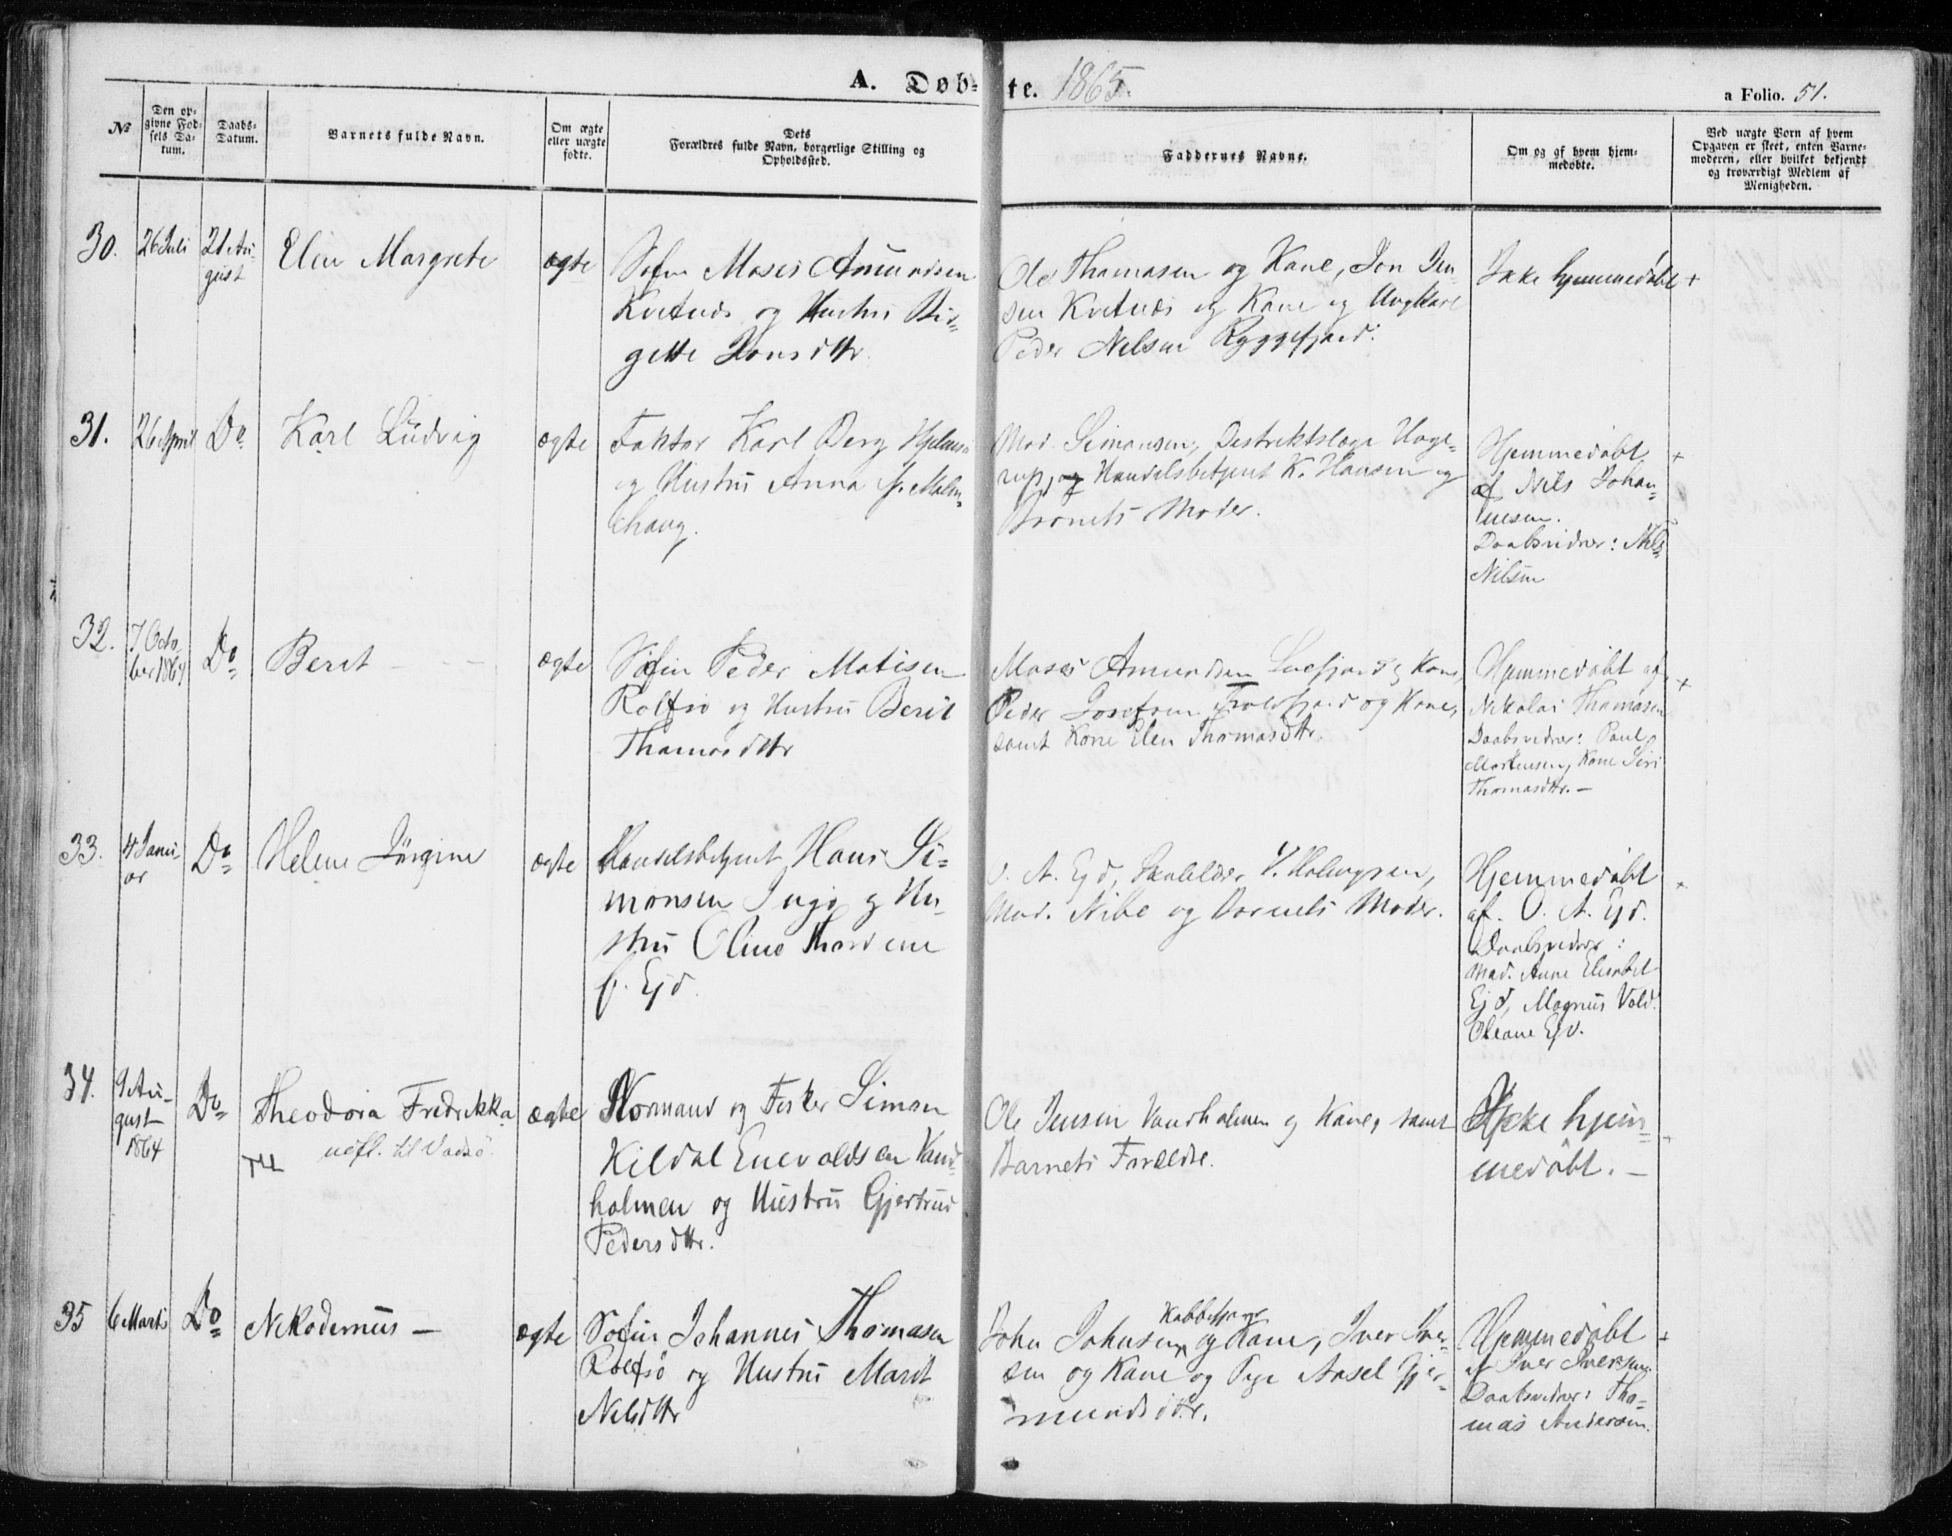 A. Døb-
te. 1865.
a Folio. 51.
№
Den op-
givne Fød-
sels Da-
tum.
Daabs-
Datum.
Barnets fulde Navn.
Om ægte
eller uægte
fødte.
Dets
Forældres fulde Navn, borgerlige Stilling og
Opholdssted.
Faddernes Navne.
Om og af hvem hjem-
medøbte.
Ved uægte Børn af hvem
Opgaven er skeet, enten Barne-
moderen, eller hvilket bekjendt
og troværdigt Medlem af
Menigheden.
30.
26 Juli
21 Au-
gust
Elen Margrete
ægte
Søfin Moses Amundsen
Kvitnæs og Hustru Bir-
gette Jonsdttr.
Ole Thomasen og Kone, Jon Jen-
sen Kvitnæs og Kone og Ungkarl
Peder Nelsen Ryggefjord.
Ikke hjemmedøbt +
31.
26 April
Do
Karl Ludvig
ægte
Faktor Karl Berg Hjelmsø
og Hustru Anna f. Malm-
chang.
Mad. Simonsen, Destriktslæge Hage-
rup, og Handelsbetjent K. Hansen og
Barnets Moder.
Hjemmedøbt +
af Nils Johan-
nesen.
Daabsvidner: Nils
Nilsen
32.
7 Octo-
ber 1864
Do
Berit
ægte
Søfin Peder Matisen
Rolfsø og Hustru Berit
Thomasdttr
Moses Amundsen Snefjord og Kone,
Peder Josefsen Troldfjord og Kone,
samt Kone Elen Thomasdttr.
Hjemmedøbt af +
Nikolai Thomasen
Daabsvidner: Paul
Mortensen, Kone Siri
Thomasdttr. —
33.
4 Janu-
ar
Do
Helene Jørgine
ægte
Handelsbetjent Hans Si-
monsen Ingø og Hu-
stru Oline
f. Ejd.
O. A. Ejd, V. Holmgren,
Mad. Nibe og Barnets Moder.
Hjemmedøbt +
af. O. A. Ejd.
Daabsvidner:
Mad. Anne Elisabet
Ejd, Magnus Vold.
Oleane Ejd.
34.
9 Au-
gust
1864
Do
Theodora Fredrikka
udfl. til Vadsø.
ægte
Normand og Fisker Simon
Kildal Enevoldsen Vand-
holmen og Hustru Gjertrud
Pedersdttr.
Ole Jensen Vandholmen og Kone, samt
Barnets Forældre.
Ikke hjem- +
medøbt. —
35
6 Marts
Do
Nekodemus —
ægte
Søfin Johannes Thomasen
Rolfsø og Hustru Marit
Nelsdttr
Kobbefjord
John Johnsen og Kone, Iver Iver-
sen og Kone og Pige Aasel Gjer-
mundsdttr.
Hjemmedøbt +
af Iver Iversen.
Daabsvidner: Tho-
mas Andersen.